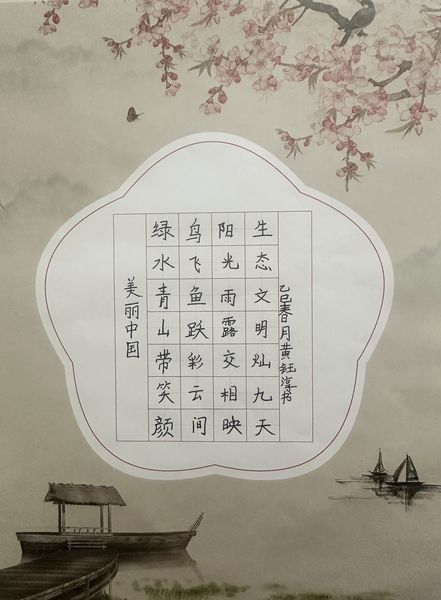 美丽中国
绿水青山带笑颜
鸟飞鱼跃彩云间
阳光雨露交相映
生态文明灿九天
乙巳春月黄钰淳书